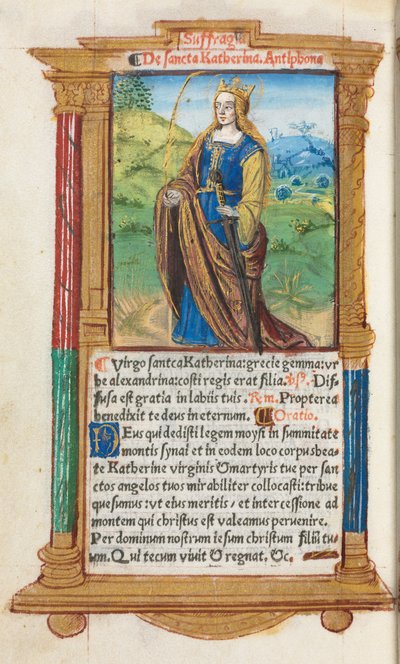 Suffragia
De sancta Katherina. Antiphona
Virgo sanctca Katherina: grecie gemma: vr
be alexandrina: costi regis erat filia. Vs. Dif
fusa est gratia in labiis tuis. Rm. Propterea
benedixit te deus in eternum. Oratio.
DEus qui dedisti legem moysi in summitate
montis synai et in eodem loco corpus bea-
te Katherine virginis & martyris tue per san
ctos angelos tuos mirabiliter collocasti: tribue
quesumus: vt eius meritis, et intercessione ad
montem qui christus est valeamus peruenire.
Per dominum nostrum iesum christum filiū tu-
um. Qui tecum viuit & regnat. &c.